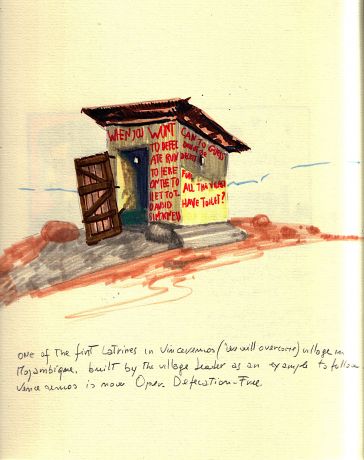 WHEN YOU WONT
TO DEFEC
ATE RUN
TO HERE
ON THE TO
ILET TO
AVOID
CAN TO
DISEA
FOR
ALL THE
HAVE TOILET?
one of the first Latrines in Vinceremos ("we will overcome) village in
Mozambique, built by the village leader as an example to follow
Vinceremos is now Open Defecation-Free